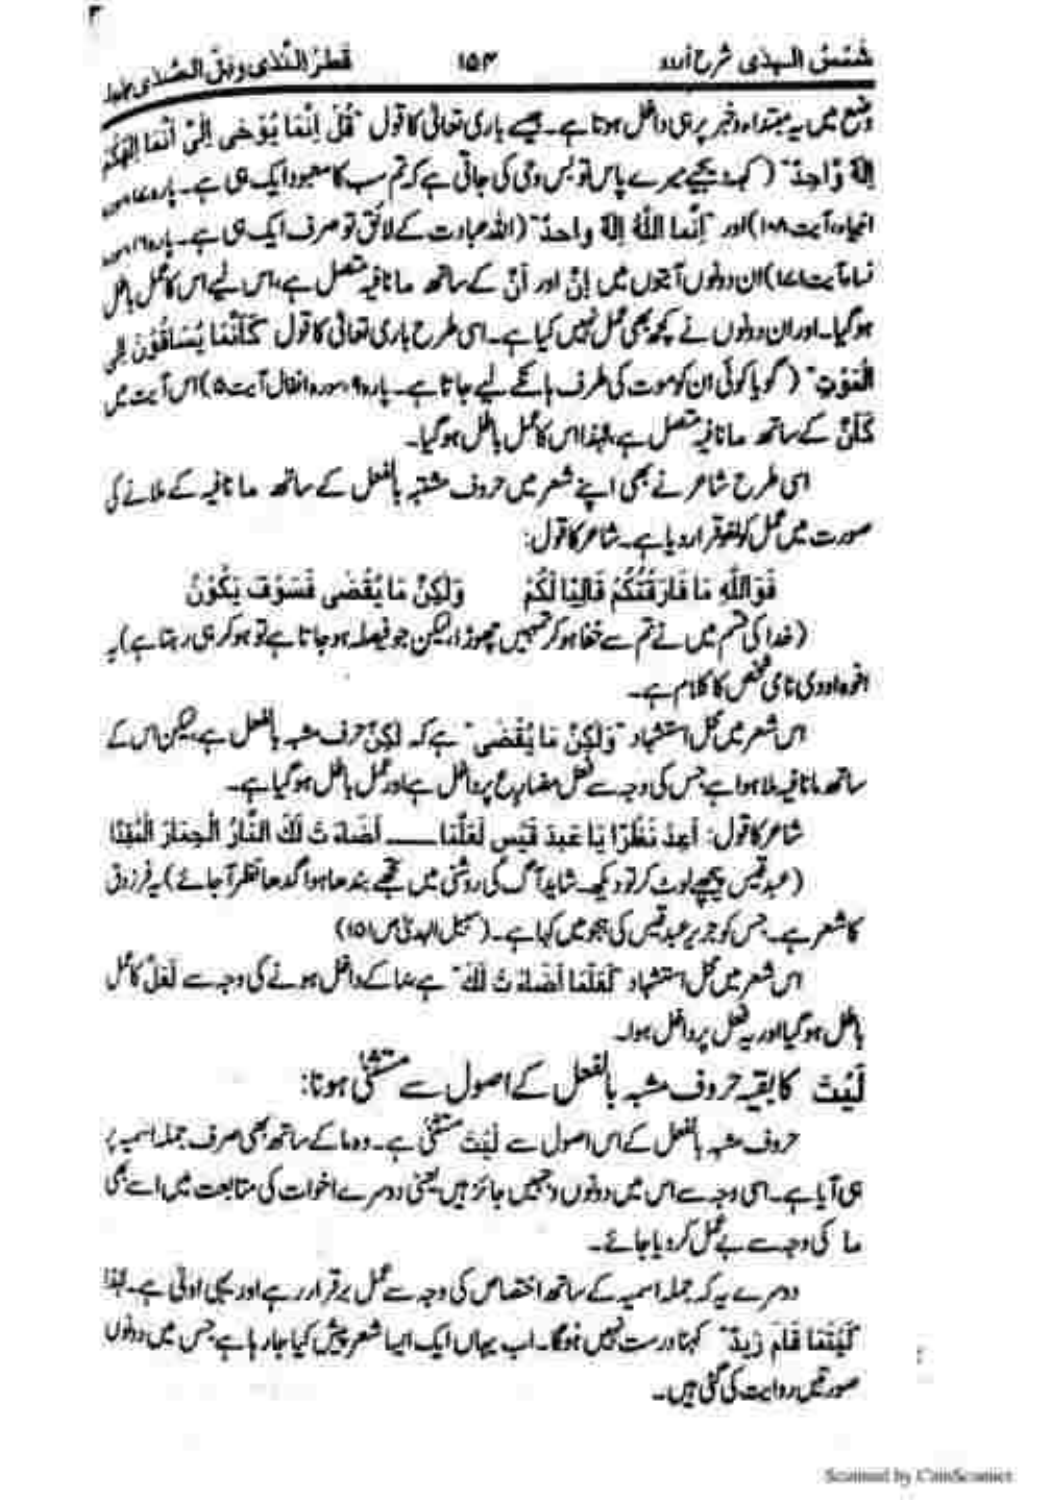 ۳
شمسُ الہدٰی شرح اُردو ۱۵۳ قطرُ النَّدٰی و بَلُّ الصَّدٰی
وضع میں یہ مبتداء و خبر پر ہی داخل ہوتا ہے۔ جیسے باری تعالیٰ کا قول "قُلْ اِنَّمَا يُوْحٰى اِلَىَّ اَنَّمَا اِلٰهُكُمْ
اِلٰهٌ وَّاحِدٌ" (کہہ دیجیے میرے پاس تو بس وحی کی جاتی ہے کہ تم سب کا معبود ایک ہی ہے۔ پارہ ۱۷
انبیاء، آیت ۱۰۸) اور "اِنَّما اللّٰهُ اِلٰهٌ واحدٌ" (اللہ عبادت کے لائق تو صرف ایک ہی ہے۔ پارہ ۶
نساء آیت ۱۷۱) ان دونوں آیتوں میں اِنَّ اور اَنَّ کے ساتھ ما نافیہ متصل ہے، اس لیے اس کا عمل باطل
ہو گیا۔ اور ان دونوں نے کچھ بھی عمل نہیں کیا ہے۔ اسی طرح باری تعالیٰ کا قول "كَاَنَّمَا يُسَاقُوْنَ اِلى
الْمَوْتِ" (گویا کوئی ان کو موت کی طرف ہانکے لیے جاتا ہے۔ پارہ ۹، سورہ انفال آیت ۵) اس آیت میں
كَاَنَّ کے ساتھ ما نافیہ متصل ہے، لہٰذا اس کا عمل باطل ہو گیا۔
اسی طرح شاعر نے بھی اپنے شعر میں حروف مشبہ بالفعل کے ساتھ ما نافیہ کے ملانے کی
صورت میں عمل کو لغو قرار دیا ہے۔ شاعر کا قول:
فَوَاللّٰهِ مَا فَارَقْتُكُمْ قَالِيًا لَكُمْ وَلٰكِنَّ مَا يُقْضٰى فَسَوْفَ يَكُوْنُ
(خدا کی قسم میں نے تم سے خفا ہو کر تمہیں چھوڑا، لیکن جو فیصلہ ہو جاتا ہے تو ہو کر ہی رہتا ہے) یہ
افوہ اودی نامی شخص کا کلام ہے۔
اس شعر میں محل استشہاد "وَلٰكِنَّ مَا يُقْضٰى" ہے کہ لٰكِنَّ حرف مشبہ بالفعل ہے، لیکن اس کے
ساتھ ما نافیہ ملا ہوا ہے جس کی وجہ سے فعل مضارع پر داخل ہے اور عمل باطل ہو گیا ہے۔
شاعر کا قول: اَعِدْ نَظَرًا يَا عَبدَ قَيْسٍ لَعَلَّمَا ــــ اَضَاءَتْ لَكَ النَّارُ الْحِمَارَ الْمُقَيَّدَا
(عبد قیس پیچھے لوٹ کر تو دیکھ۔ شاید آگ کی روشنی میں تجھے بندھا ہوا گدھا نظر آ جائے) یہ فرزدق
کا شعر ہے۔ جس کو جریر عبد قیس کی ہجو میں کہا ہے۔ (سبیل الہدیٰ ص ۱۵۱)
اس شعر میں محل استشہاد "لَعَلَّمَا اَضَاءَتْ لَكَ" ہے ما کے داخل ہونے کی وجہ سے لَعَلَّ کا عمل
باطل ہو گیا اور یہ فعل پر داخل ہوا۔
لَيْتَ کا بقیہ حروف مشبہ بالفعل کے اصول سے مستثنٰی ہونا:
حروف مشبہ بالفعل کے اس اصول سے لَيْتَ مستثنٰی ہے۔ وہ ما کے ساتھ بھی صرف جملہ اسمیہ پر
ہی آیا ہے۔ اسی وجہ سے اس میں دونوں وجہیں جائز ہیں یعنی دوسرے اخوات کی متابعت میں اسے بھی
ما کی وجہ سے بے عمل کر دیا جائے۔
دوسرے یہ کہ جملہ اسمیہ کے ساتھ اختصاص کی وجہ سے عمل برقرار رہے اور یہی اولیٰ ہے۔ لہٰذا
"لَيْتَمَا قَامَ زَيدٌ" کہنا درست نہیں ہوگا۔ اب یہاں ایک ایسا شعر پیش کیا جا رہا ہے جس میں دونوں
صورتیں روایت کی گئی ہیں۔
Scanned by CamScanner